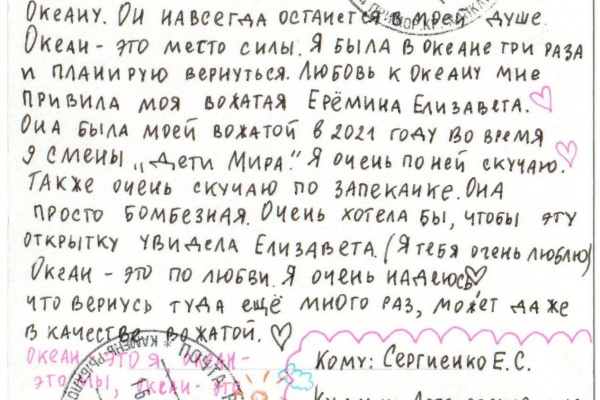 Океану. Он навсегда останется в моей душе.
Океан - это место силы. Я была в океане три раза
и планирую вернуться. Любовь к Океану мне
привила моя вожатая Ерёмина Елизавета.
Она была моей вожатой в 2021 году во время
9 смены "Дети Мира." Я очень по ней скучаю.
Также очень скучаю по запеканке. Она
просто бомбезная. Очень хотела бы, чтобы эту
открытку увидела Елизавета. (Я тебя очень люблю)
Океан - это по любви. Я очень надеюсь
что вернусь туда ещё много раз, может даже
в качестве вожатой.
Океан - это я, океан -
это мы, океан - это
Кому: Сергиенко Е.С.